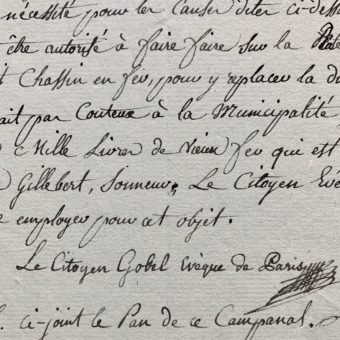 nécessité pour les causes dites ci-dess
être autorisé à faire faire sur la
t Chassin en fer, pour y replacer la
ait par Couteux à la Municipalité
c Mille Livres de Vieux fer qui est
Gillebert, Sonneur, Le Citoyen Evê
employer pour cet objet.
Le Citoyen Gobel Evêque de Paris
ci-joint le Pan de ce Campanal.